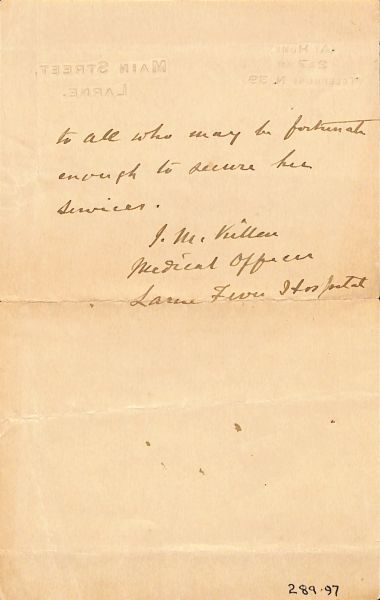 At Home
2 & 7
Telephone N. 39.
Main Street,
Larne.
to all who may be fortunate
enough to secure her
services.
J. M. Killen
Medical Officer
Larne Fever Hospital
289.97